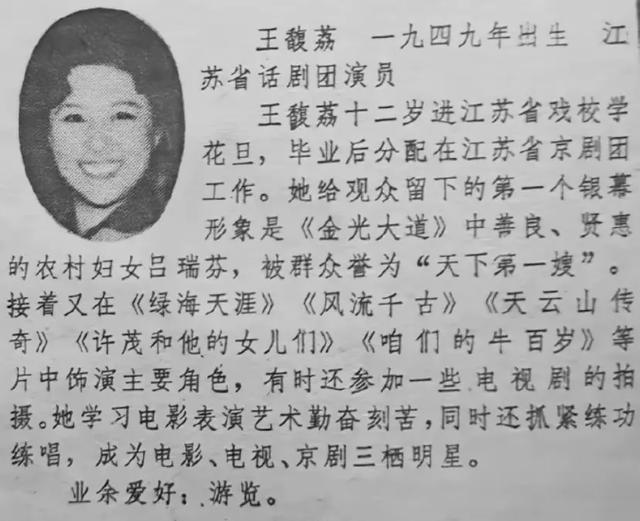 王馥荔 一九四九年出生 江
苏省话剧团演员
王馥荔十二岁进江苏省戏校学
花旦，毕业后分配在江苏省京剧团
工作。她给观众留下的第一个银幕
形象是《金光大道》中善良、贤惠
的农村妇女吕瑞芬，被群众誉为“天下第一嫂”。
接着又在《绿海天涯》《风流千古》《天云山传
奇》《许茂和他的女儿们》《咱们的牛百岁》等
片中饰演主要角色，有时还参加一些电视剧的拍
摄。她学习电影表演艺术勤奋刻苦，同时还抓紧练功
练唱，成为电影、电视、京剧三栖明星。
业余爱好：游览。